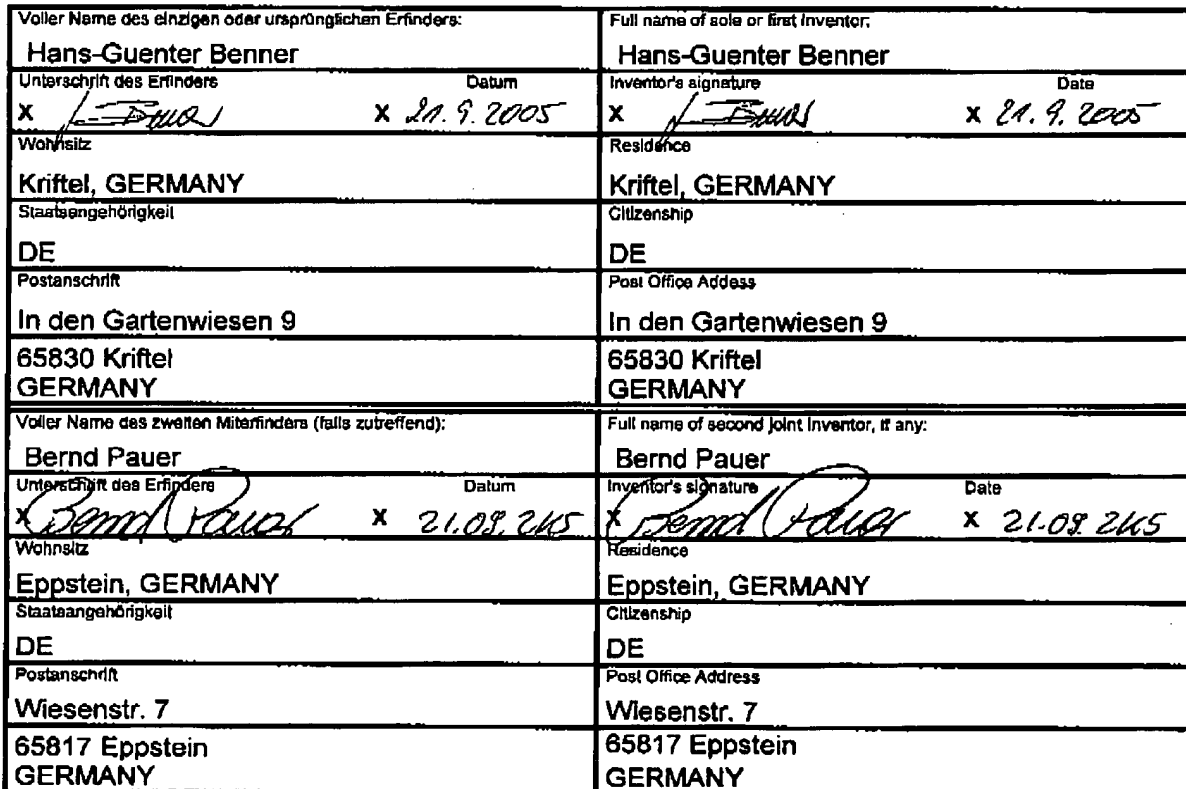 Voller Name des einzigen oder ursprünglichen Erfinders:
Hans-Guenter Benner
Unterschrift des Erfinders Datum
X X 21. 9. 2005
Wohnsitz
Kriftel, GERMANY
Staatsangehörigkeit
DE
Postanschrift
In den Gartenwiesen 9
65830 Kriftel
GERMANY
Voller Name des zweiten Miterfinders (falls zutreffend):
Bernd Pauer
Unterschrift des Erfinders Datum
X Bernd Pauer X 21.09.2005
Wohnsitz
Eppstein, GERMANY
Staatsangehörigkeit
DE
Postanschrift
Wiesenstr. 7
65817 Eppstein
GERMANY
Full name of sole or first inventor:
Hans-Guenter Benner
Inventor's signature Date
X X 21. 9. 2005
Residence
Kriftel, GERMANY
Citizenship
DE
Post Office Addess
In den Gartenwiesen 9
65830 Kriftel
GERMANY
Full name of second joint inventor, if any:
Bernd Pauer
Inventor's signature Date
X Bernd Pauer X 21.09.2005
Residence
Eppstein, GERMANY
Citizenship
DE
Post Office Address
Wiesenstr. 7
65817 Eppstein
GERMANY